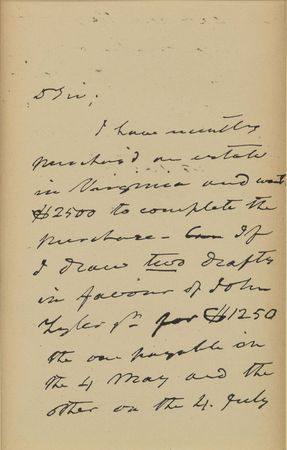 D Sir;
I have recently
purchas'd an estate
in Virginia and want
$2500 to complete the
purchase - Can If
I draw two drafts
in favour of John
Tyler Jr for $1250
the one payable on
the 4 May and the
other on the 4. July